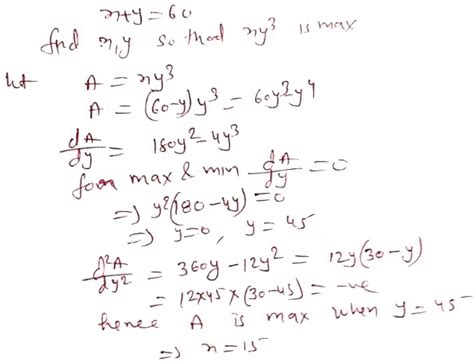 x+y=60
find x,y so that xy³ is max
let A = xy³
A = (60-y)y³ = 60y³-y⁴
dA/dy = 180y²-4y³
for max & min dA/dy = 0
=) y²(180-4y)=0
=) y=0, y=45
d²A/dy² = 360y-12y² = 12y(30-y)
= 12×45×(30-45) = -ve
hence A is max when y=45
=) x=15